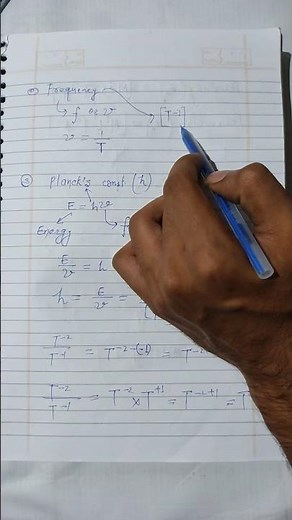 Frequency [T⁻¹]
f or ν
ν = 1/T
Planck's const (h)
E = hν
Energy f
E/ν = h
h = E/ν =
T⁻²/T⁻¹ = T⁻²⁻⁽⁻¹⁾ = T⁻²
T⁻²/T⁻¹ = T⁻² × T⁺¹ = T⁻²⁺¹ = T